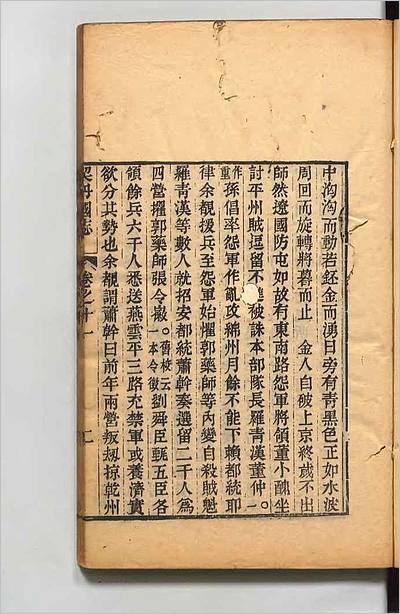 中洶洶而動若金而湧日旁有青黑色正如水波
周回而旋轉將暮而止　金人自破上京終歲不出
師然遼國防屯如故有東南路怨軍將領董小醜坐
討平州賊逗留不進被誅本部隊長羅青漢董仲一
作重孫倡率怨軍作亂攻綿州月餘不能下賴都統耶
律余覩援兵至怨軍始懼郭藥師等內變自殺賊魁
羅青漢等數人就招安都統蕭幹奏選留二千人爲
四營擢郭藥師張令舊校云一本令徽劉舜臣甄五臣各
領餘兵六千人悉送燕雲平三路充禁軍或養濟實
欲分其勢也余覩謂蕭幹曰前年兩營叛劫掠乾州
契丹國志　卷之十一